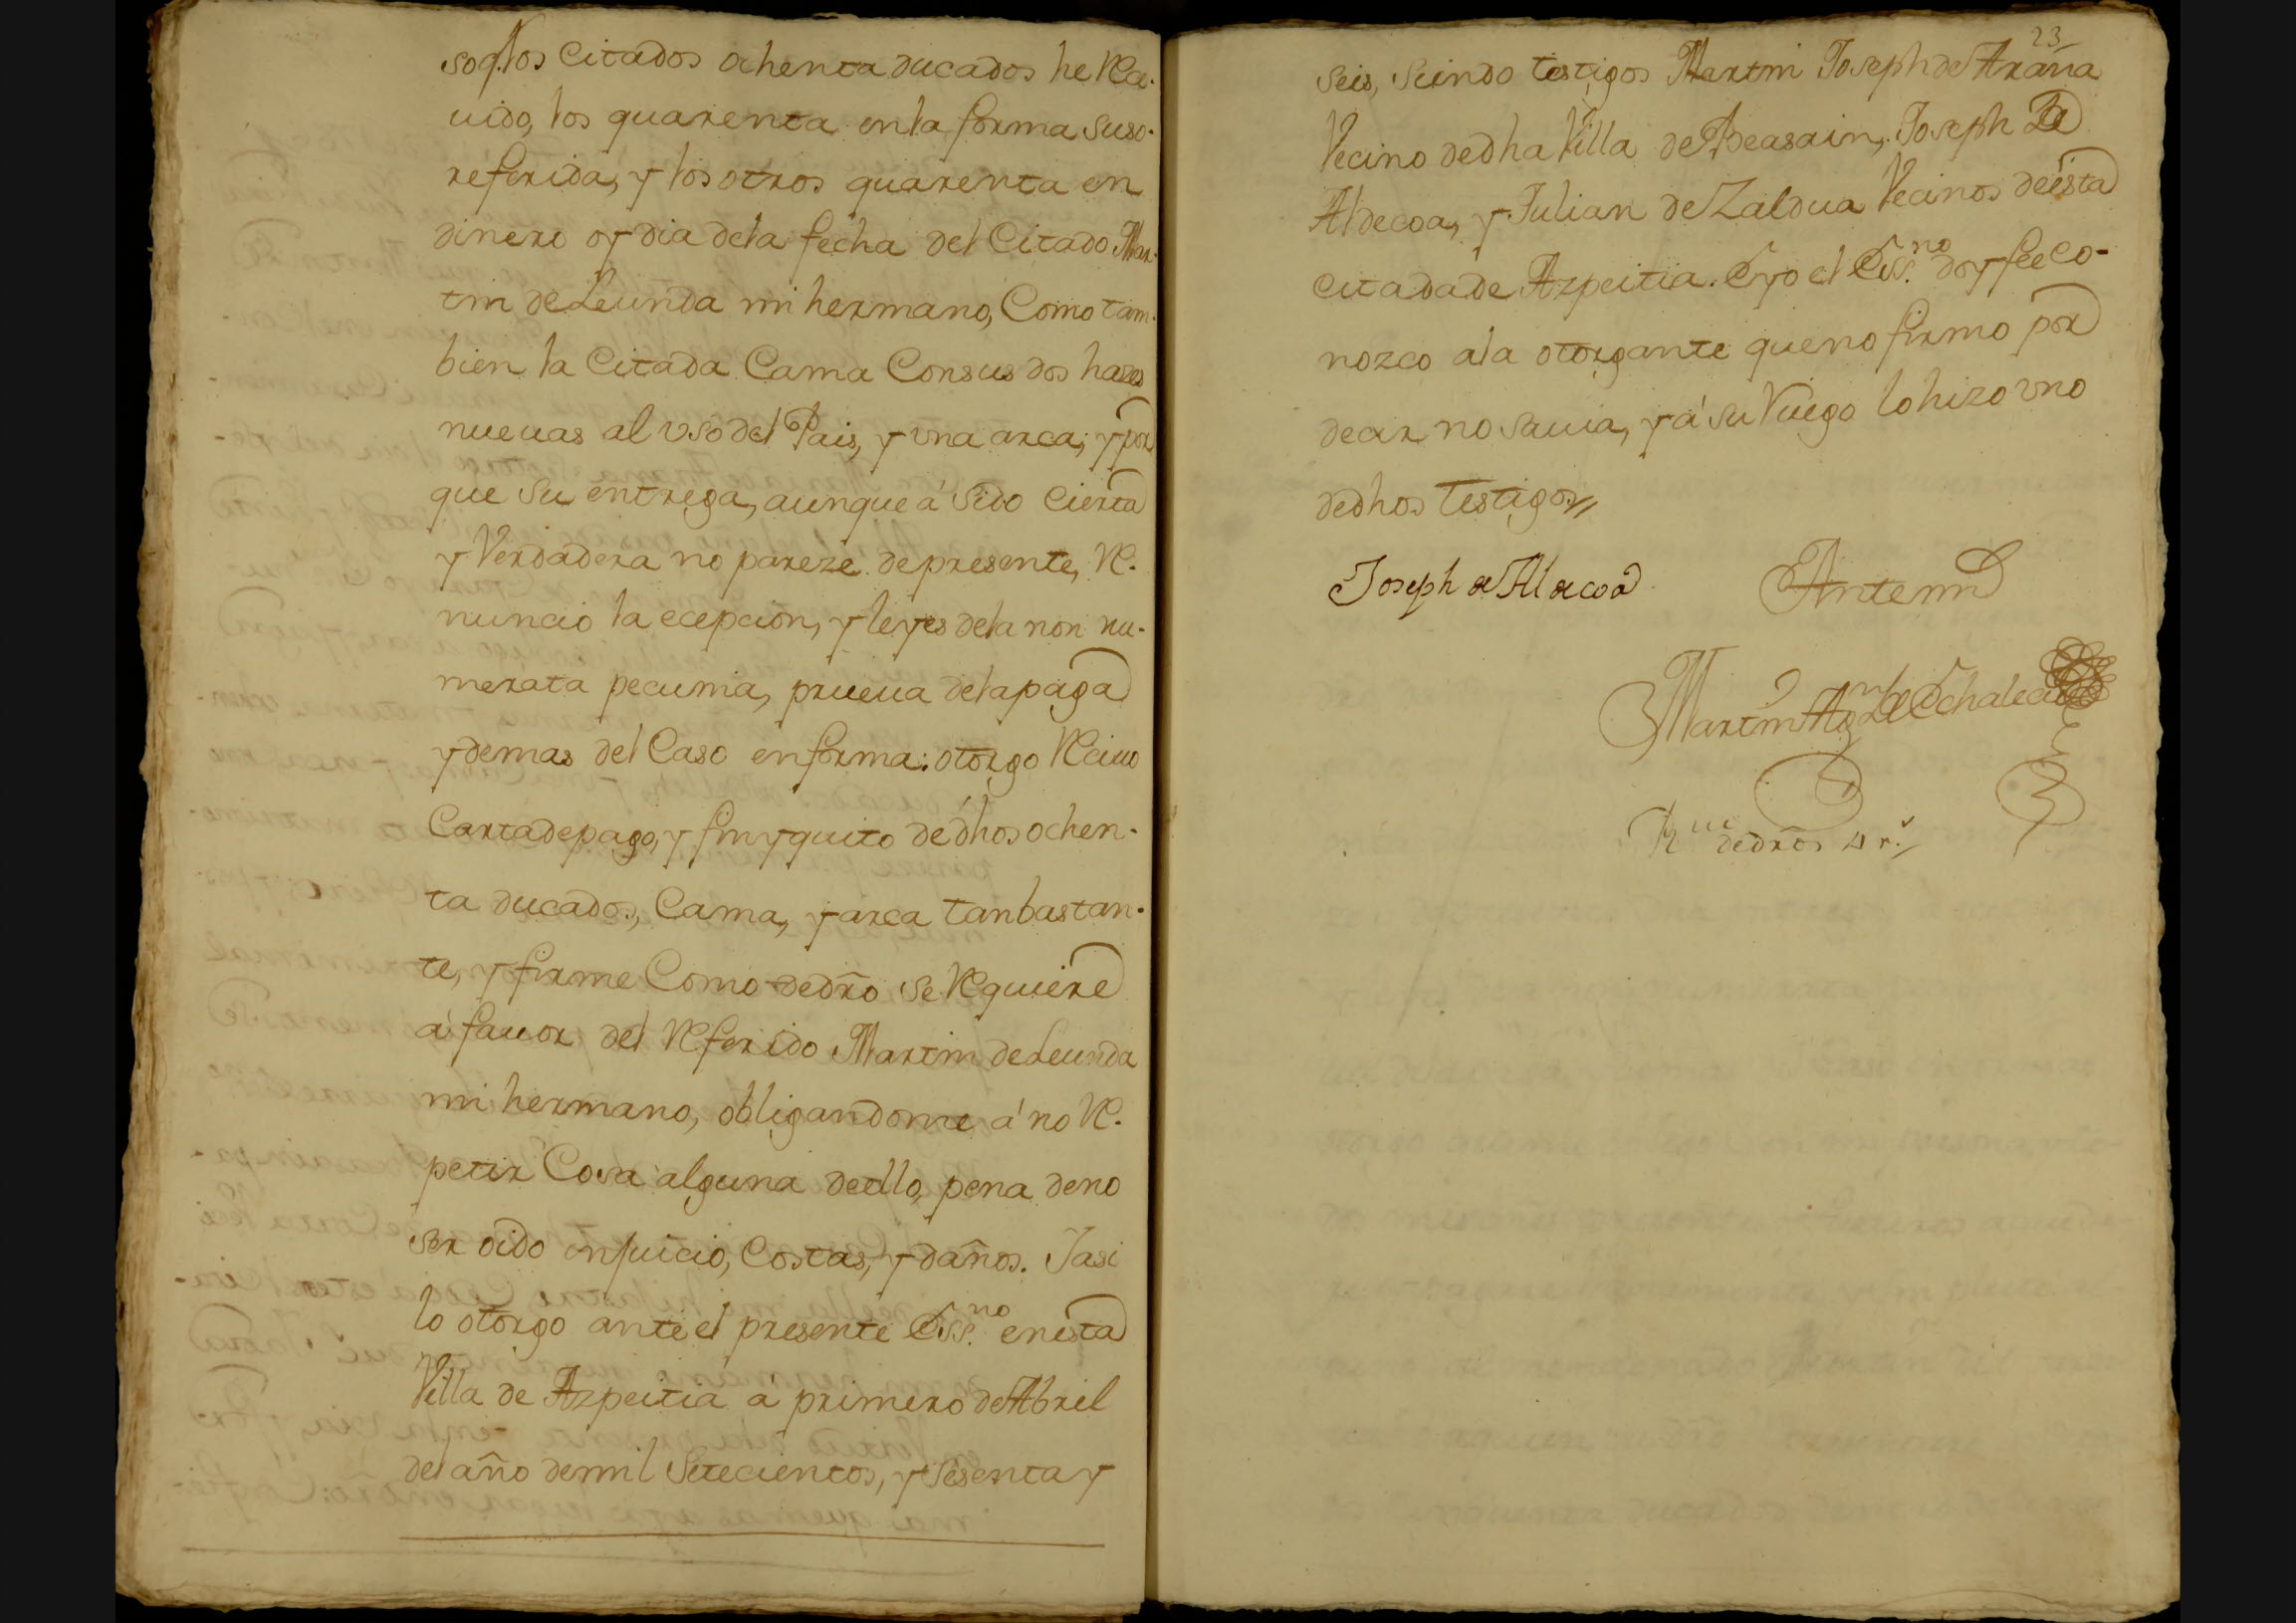 so q.e los citados ochenta ducados he Rea-
uido, los quarenta en la forma suso-
referida, y los otros quarenta en
dinero oy dia dela fecha del Citado Mar-
tin de Leunda mi hermano, Como tam-
bien la Citada Cama Con sus dos hazes
nueuas al vso del Pais, y vna arca; y por
que su entrega, aunque á sido cierta
y Verdadera no pareze de presente, Re-
nuncio la ecepcion, y leyes dela non nu-
merata pecunia, prueua dela paga
y demas del Caso en forma: otorgo Reciuo
Carta de pago, y fin y quito de dhos ochen-
ta ducados, Cama, y arca tan bastan-
te, y firme Como de dro se Requiere
á fauor del Referido Martin de Leunda
mi hermano, obligandome á no Re-
petir Cosa alguna de ello, pena de no
ser oido en juicio, Costas, y daños. Y asi
lo otorgo ante el presente Ess.no en esta
Villa de Azpeitia á primero de Abril
del año de mil Setecientos, y sesenta y
23
seis, siendo testigos Martin Joseph de Arana
Vecino de dha Villa de Beasain, Joseph de
Aldecoa, y Julian de Zaldua Vecinos de esta
citada de Azpeitia. E yo el Ess.no doy fee co-
nozco ala otorgante que no firmo por
decir no sauia, y á su Ruego lo hizo vno
de dhos testigos
Joseph de Aldecoa Ante mi
Martin Ag.n de Echalecu
de dros 4 r.s